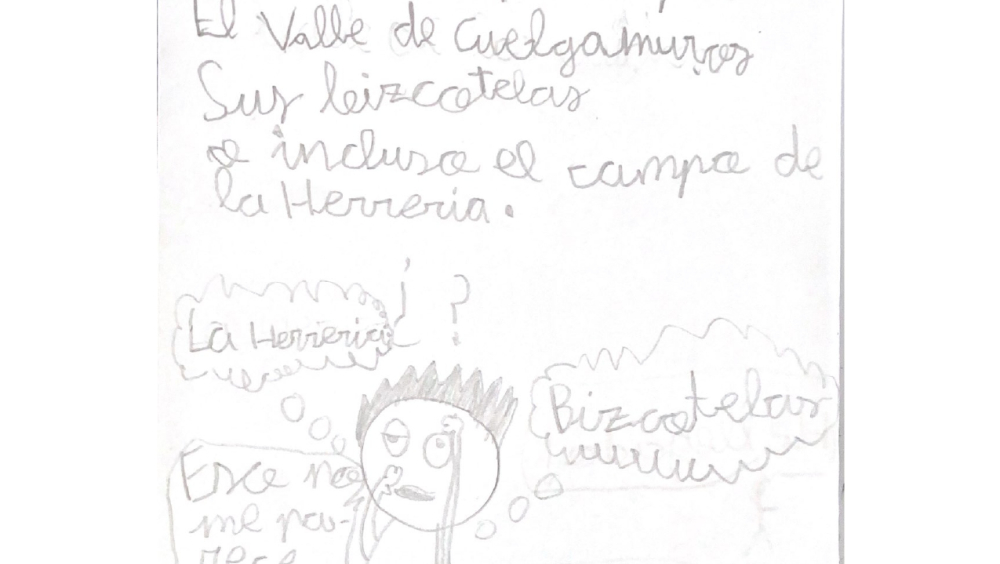 El Valle de Cuelgamuros
Sus bizcotelas
o incluso el campo de
la Herreria.
¿ ?
La Herreria
Bizcotelas
Ese no
me pa-
rece